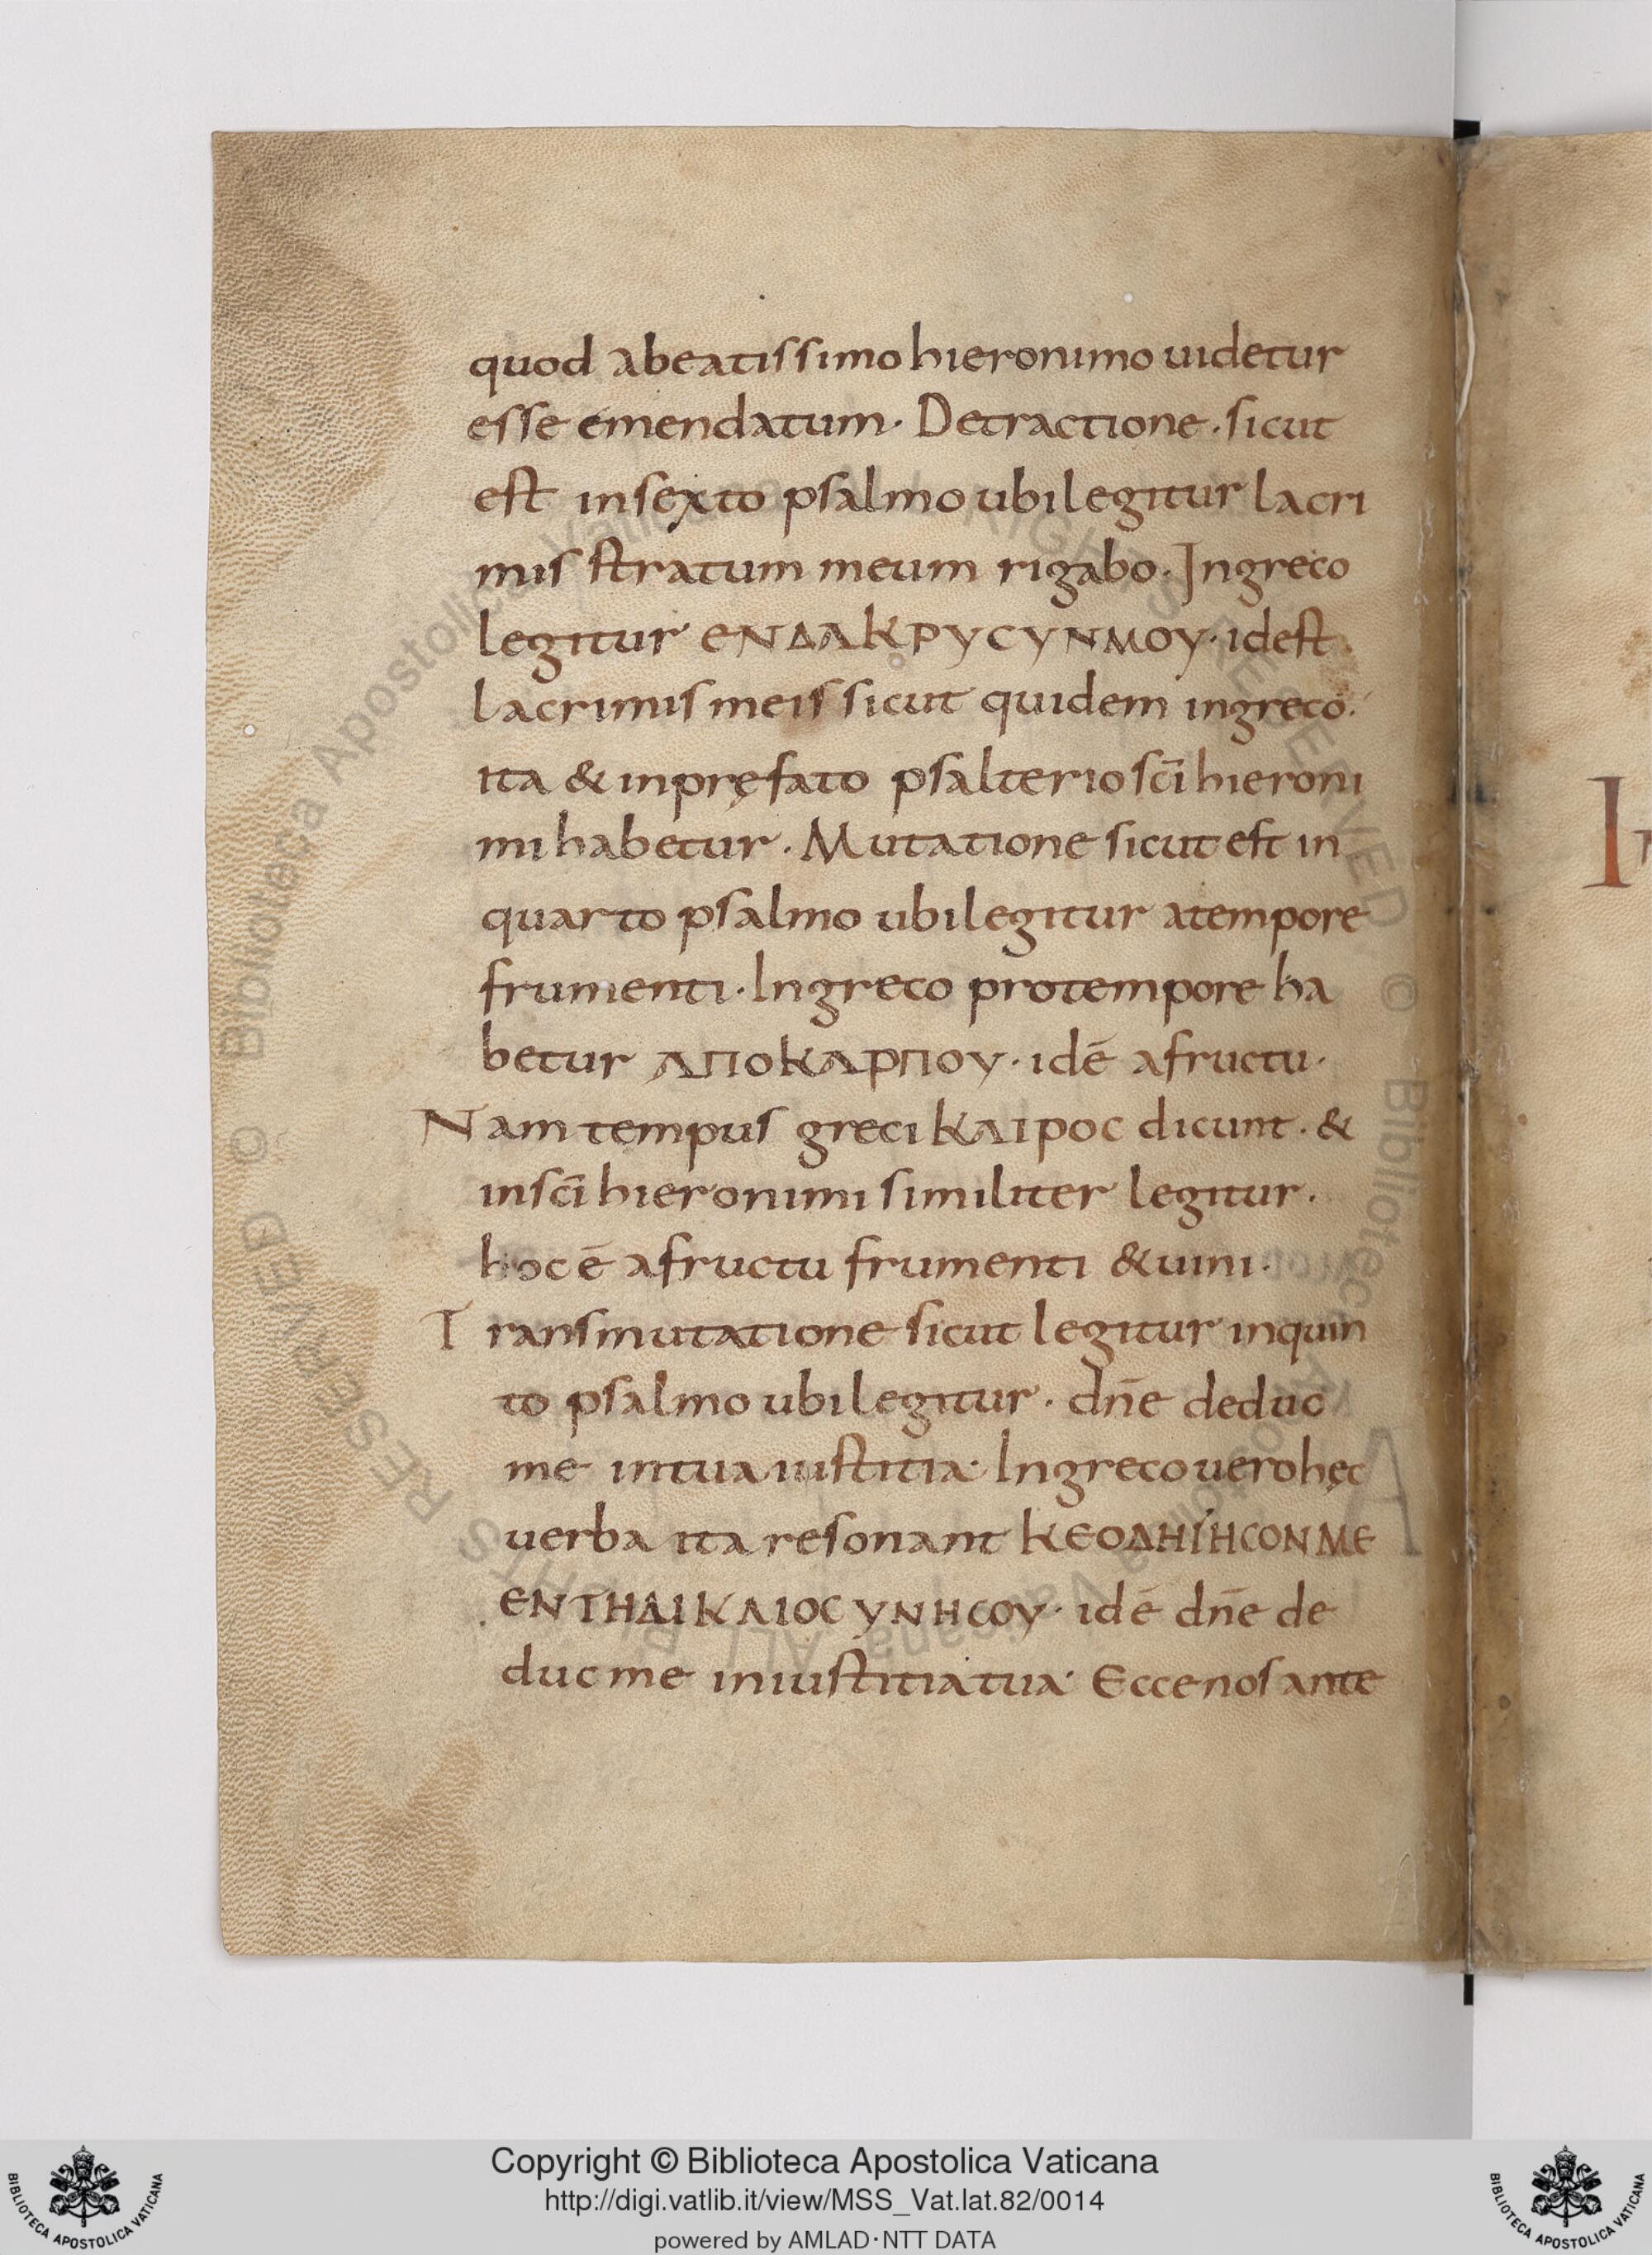 quod abeatissimo hieronimo uidetur
esse emendatum · Detractione · sicut
est insexto psalmo ubi legitur lacri
mis stratum meum rigabo · Ingreco
legitur ЄΝΔΑΚΡΥCΥΝΜΟΥ · idest
lacrimis meis sicut quidem ingreco ·
ita & inpręfato psalterio sc̄i hieroni
mi habetur · Mutatione sicut est in
quarto psalmo ubi legitur atempore
frumenti · Ingreco protempore ha
betur ΑΠΟΚΑΡΠΟΥ · idē afructu ·
Nam tempus greci ΚΑΙΡΟC dicunt · &
insc̄i hieronimi similiter legitur ·
hoc ē afructu frumenti & uini ·
Transmutatione sicut legitur inquin
to psalmo ubi legitur · dn̄e deduc
me intua iustitia · Ingreco uero hęc
uerba ita resonant ΚЄΟΔΗΓΗCΟΝΜЄ
ЄΝΤΗΔΙΚΑΙΟCΥΝΗCΟΥ · idē dn̄e de
duc me iniustitia tua · Ecce nos ante
Copyright © Biblioteca Apostolica Vaticana
http://digi.vatlib.it/view/MSS_Vat.lat.82/0014
powered by AMLAD·NTT DATA
BIBLIOTECA APOSTOLICA VATICANA
BIBLIOTECA APOSTOLICA VATICANA